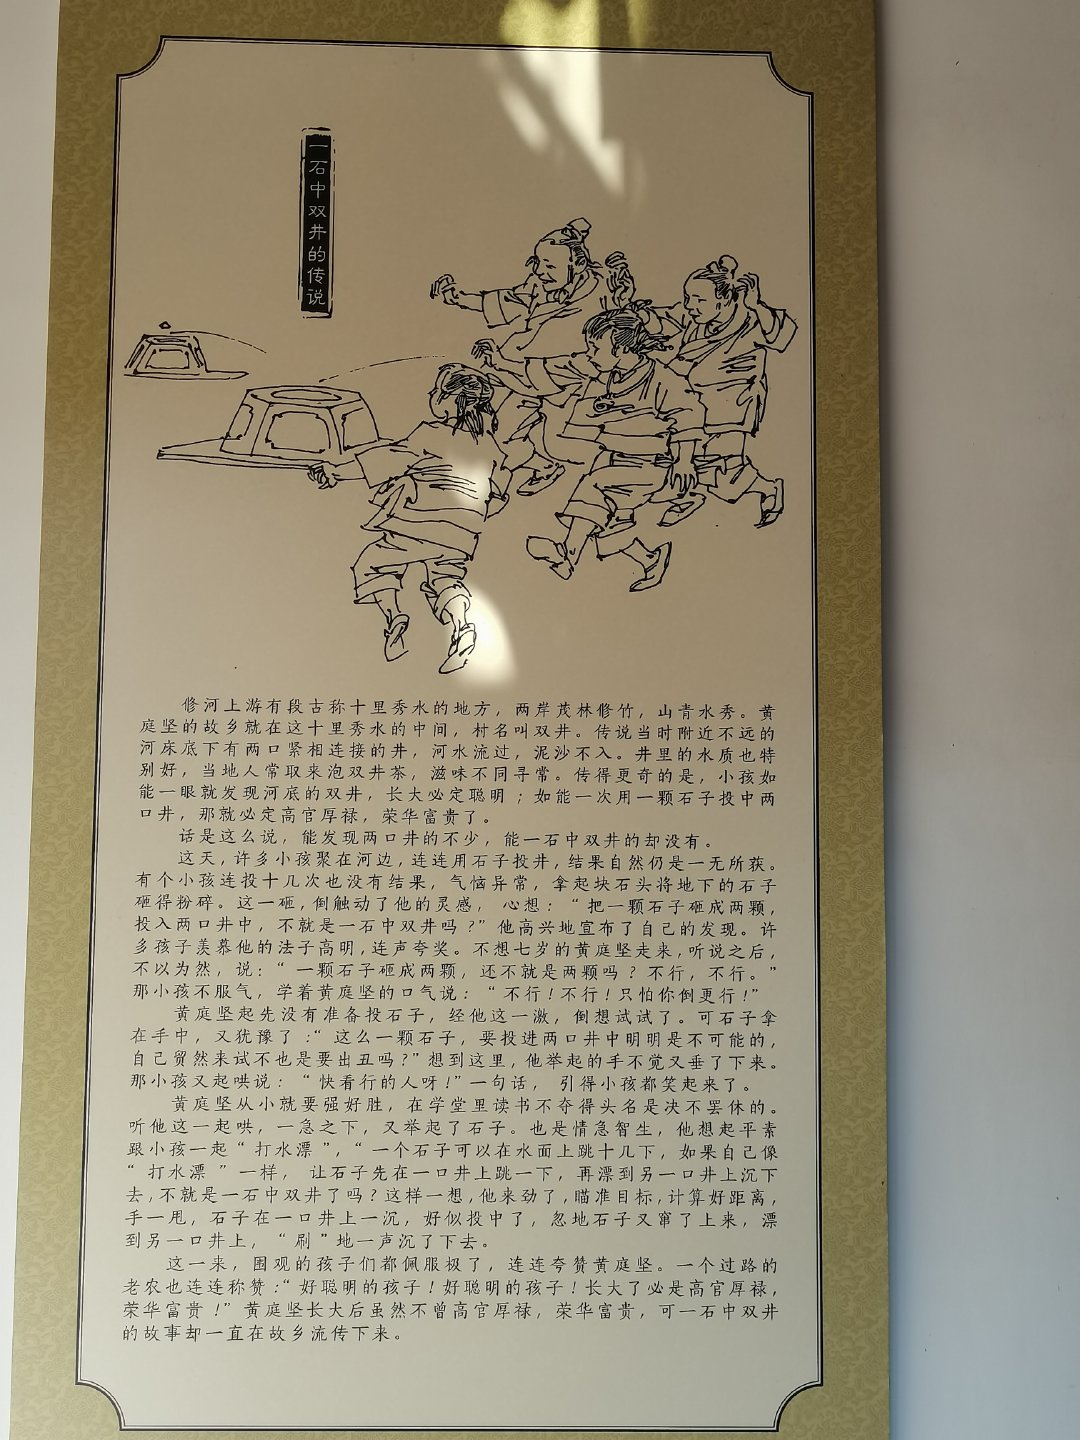 一石中双井的传说
修河上游有段古称十里秀水的地方，两岸茂林修竹，山青水秀。黄
庭坚的故乡就在这十里秀水的中间，村名叫双井。传说当时附近不远的
河床底下有两口紧相连接的井，河水流过，泥沙不入。井里的水质也特
别好，当地人常取来泡双井茶，滋味不同寻常。传得更奇的是，小孩如
能一眼就发现河底的双井，长大必定聪明；如能一次用一颗石子投中两
口井，那就必定高官厚禄，荣华富贵了。
话是这么说，能发现两口井的不少，能一石中双井的却没有。
这天，许多小孩聚在河边，连连用石子投井，结果自然仍是一无所获。
有个小孩连投十几次也没有结果，气恼异常，拿起块石头将地下的石子
砸得粉碎。这一砸，倒触动了他的灵感，心想：“把一颗石子砸成两颗，
投入两口井中，不就是一石中双井吗？”他高兴地宣布了自己的发现。许
多孩子羡慕他的法子高明，连声夸奖。不想七岁的黄庭坚走来，听说之后，
不以为然，说：“一颗石子砸成两颗，还不就是两颗吗？不行，不行。”
那小孩不服气，学着黄庭坚的口气说：“不行！不行！只怕你倒更行！”
黄庭坚起先没有准备投石子，经他这一激，倒想试试了。可石子拿
在手中，又犹豫了：“这么一颗石子，要投进两口井中明明是不可能的，
自己贸然来试不也是要出丑吗？”想到这里，他举起的手不觉又垂了下来。
那小孩又起哄说：“快看行的人呀！”一句话，引得小孩都笑起来了。
黄庭坚从小就要强好胜，在学堂里读书不夺得头名是决不罢休的。
听他这一起哄，一急之下，又举起了石子。也是情急智生，他想起平素
跟小孩一起“打水漂”，“一个石子可以在水面上跳十几下，如果自己像
“打水漂”一样，让石子先在一口井上跳一下，再漂到另一口井上沉下
去，不就是一石中双井了吗？这样一想，他来劲了，瞄准目标，计算好距离，
手一甩，石子在一口井上一沉，好似投中了，忽地石子又窜了上来，漂
到另一口井上，“刷”地一声沉了下去。
这一来，围观的孩子们都佩服极了，连连夸赞黄庭坚。一个过路的
老农也连连称赞：“好聪明的孩子！好聪明的孩子！长大了必是高官厚禄，
荣华富贵！”黄庭坚长大后虽然不曾高官厚禄，荣华富贵，可一石中双井
的故事却一直在故乡流传下来。